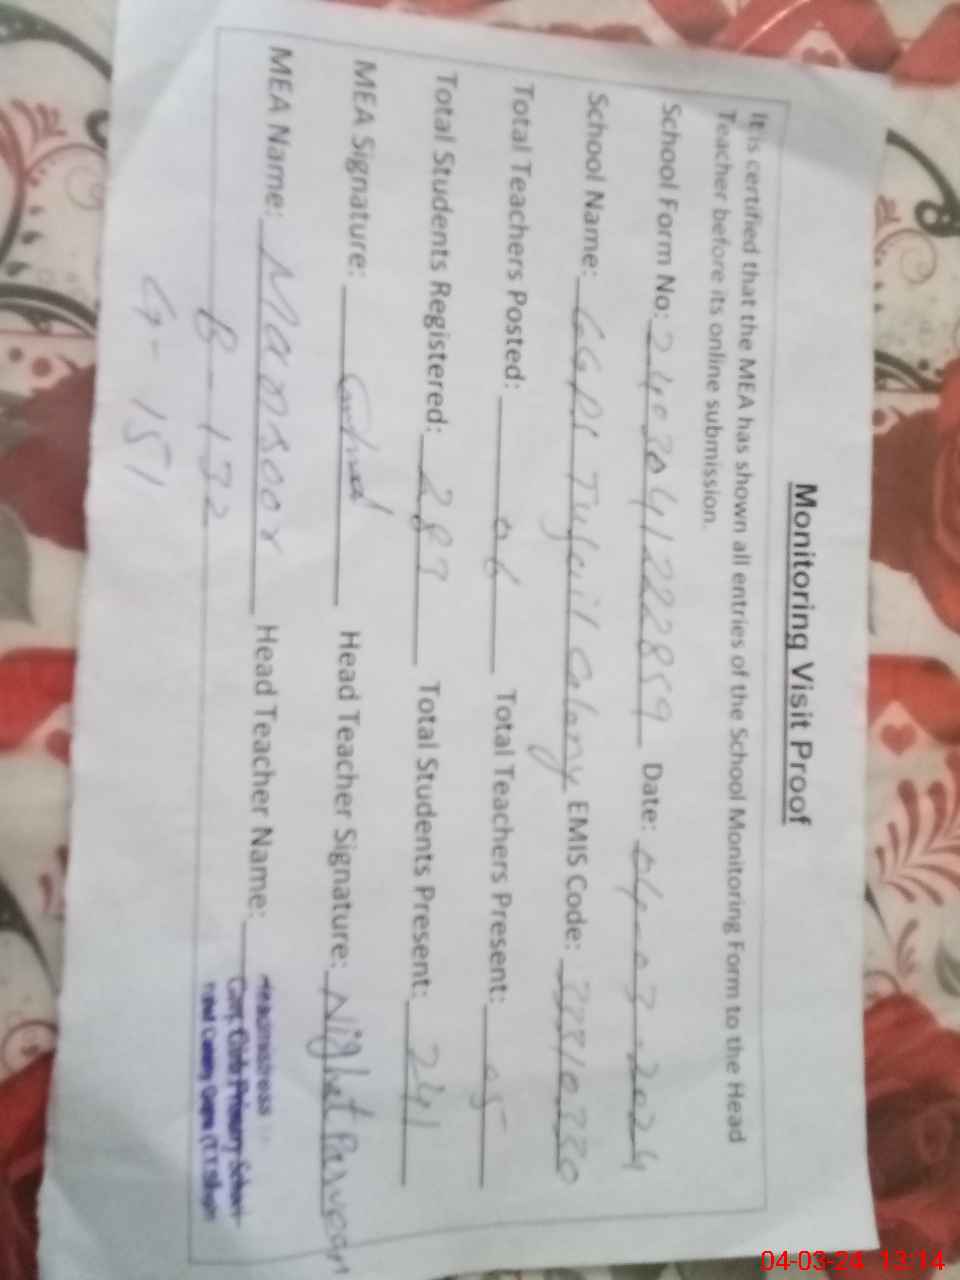 Monitoring Visit Proof
It is certified that the MEA has shown all entries of the School Monitoring Form to the Head
Teacher before its online submission.
School Form No: Date: 04-03-2024
School Name: GGPS Tufail Colony EMIS Code:
Total Teachers Posted: 06 Total Teachers Present: 05
Total Students Registered: 287 Total Students Present: 241
MEA Signature: Head Teacher Signature: Nighat Parveen
MEA Name: Mansoor Head Teacher Name:
Headmistress
Govt. Girls Primary School
B-132
G-151
04-03-24 13:14